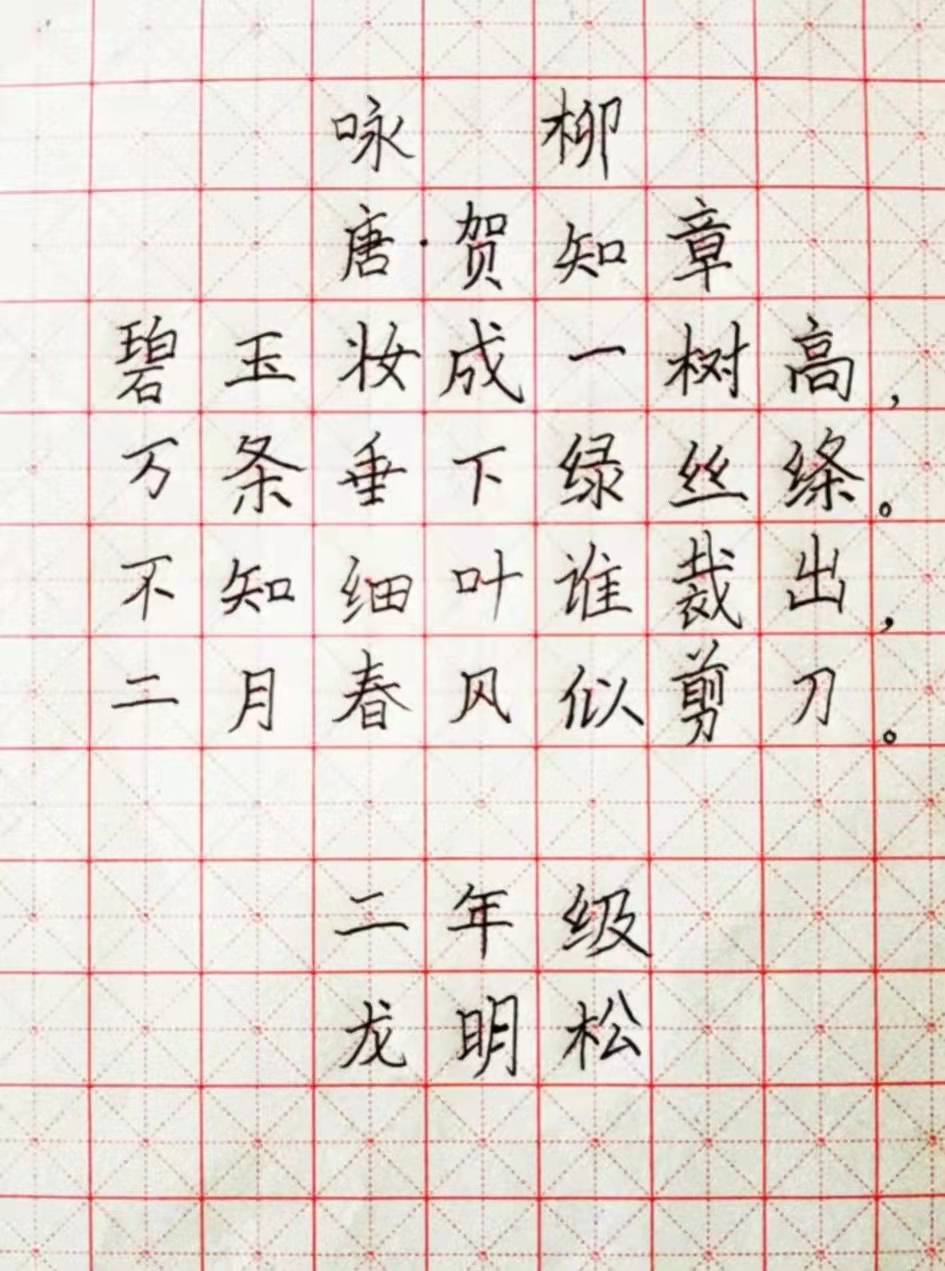 咏 柳
唐·贺知章
碧玉妆成一树高，
万条垂下绿丝绦。
不知细叶谁裁出，
二月春风似剪刀。
二年级
龙明松